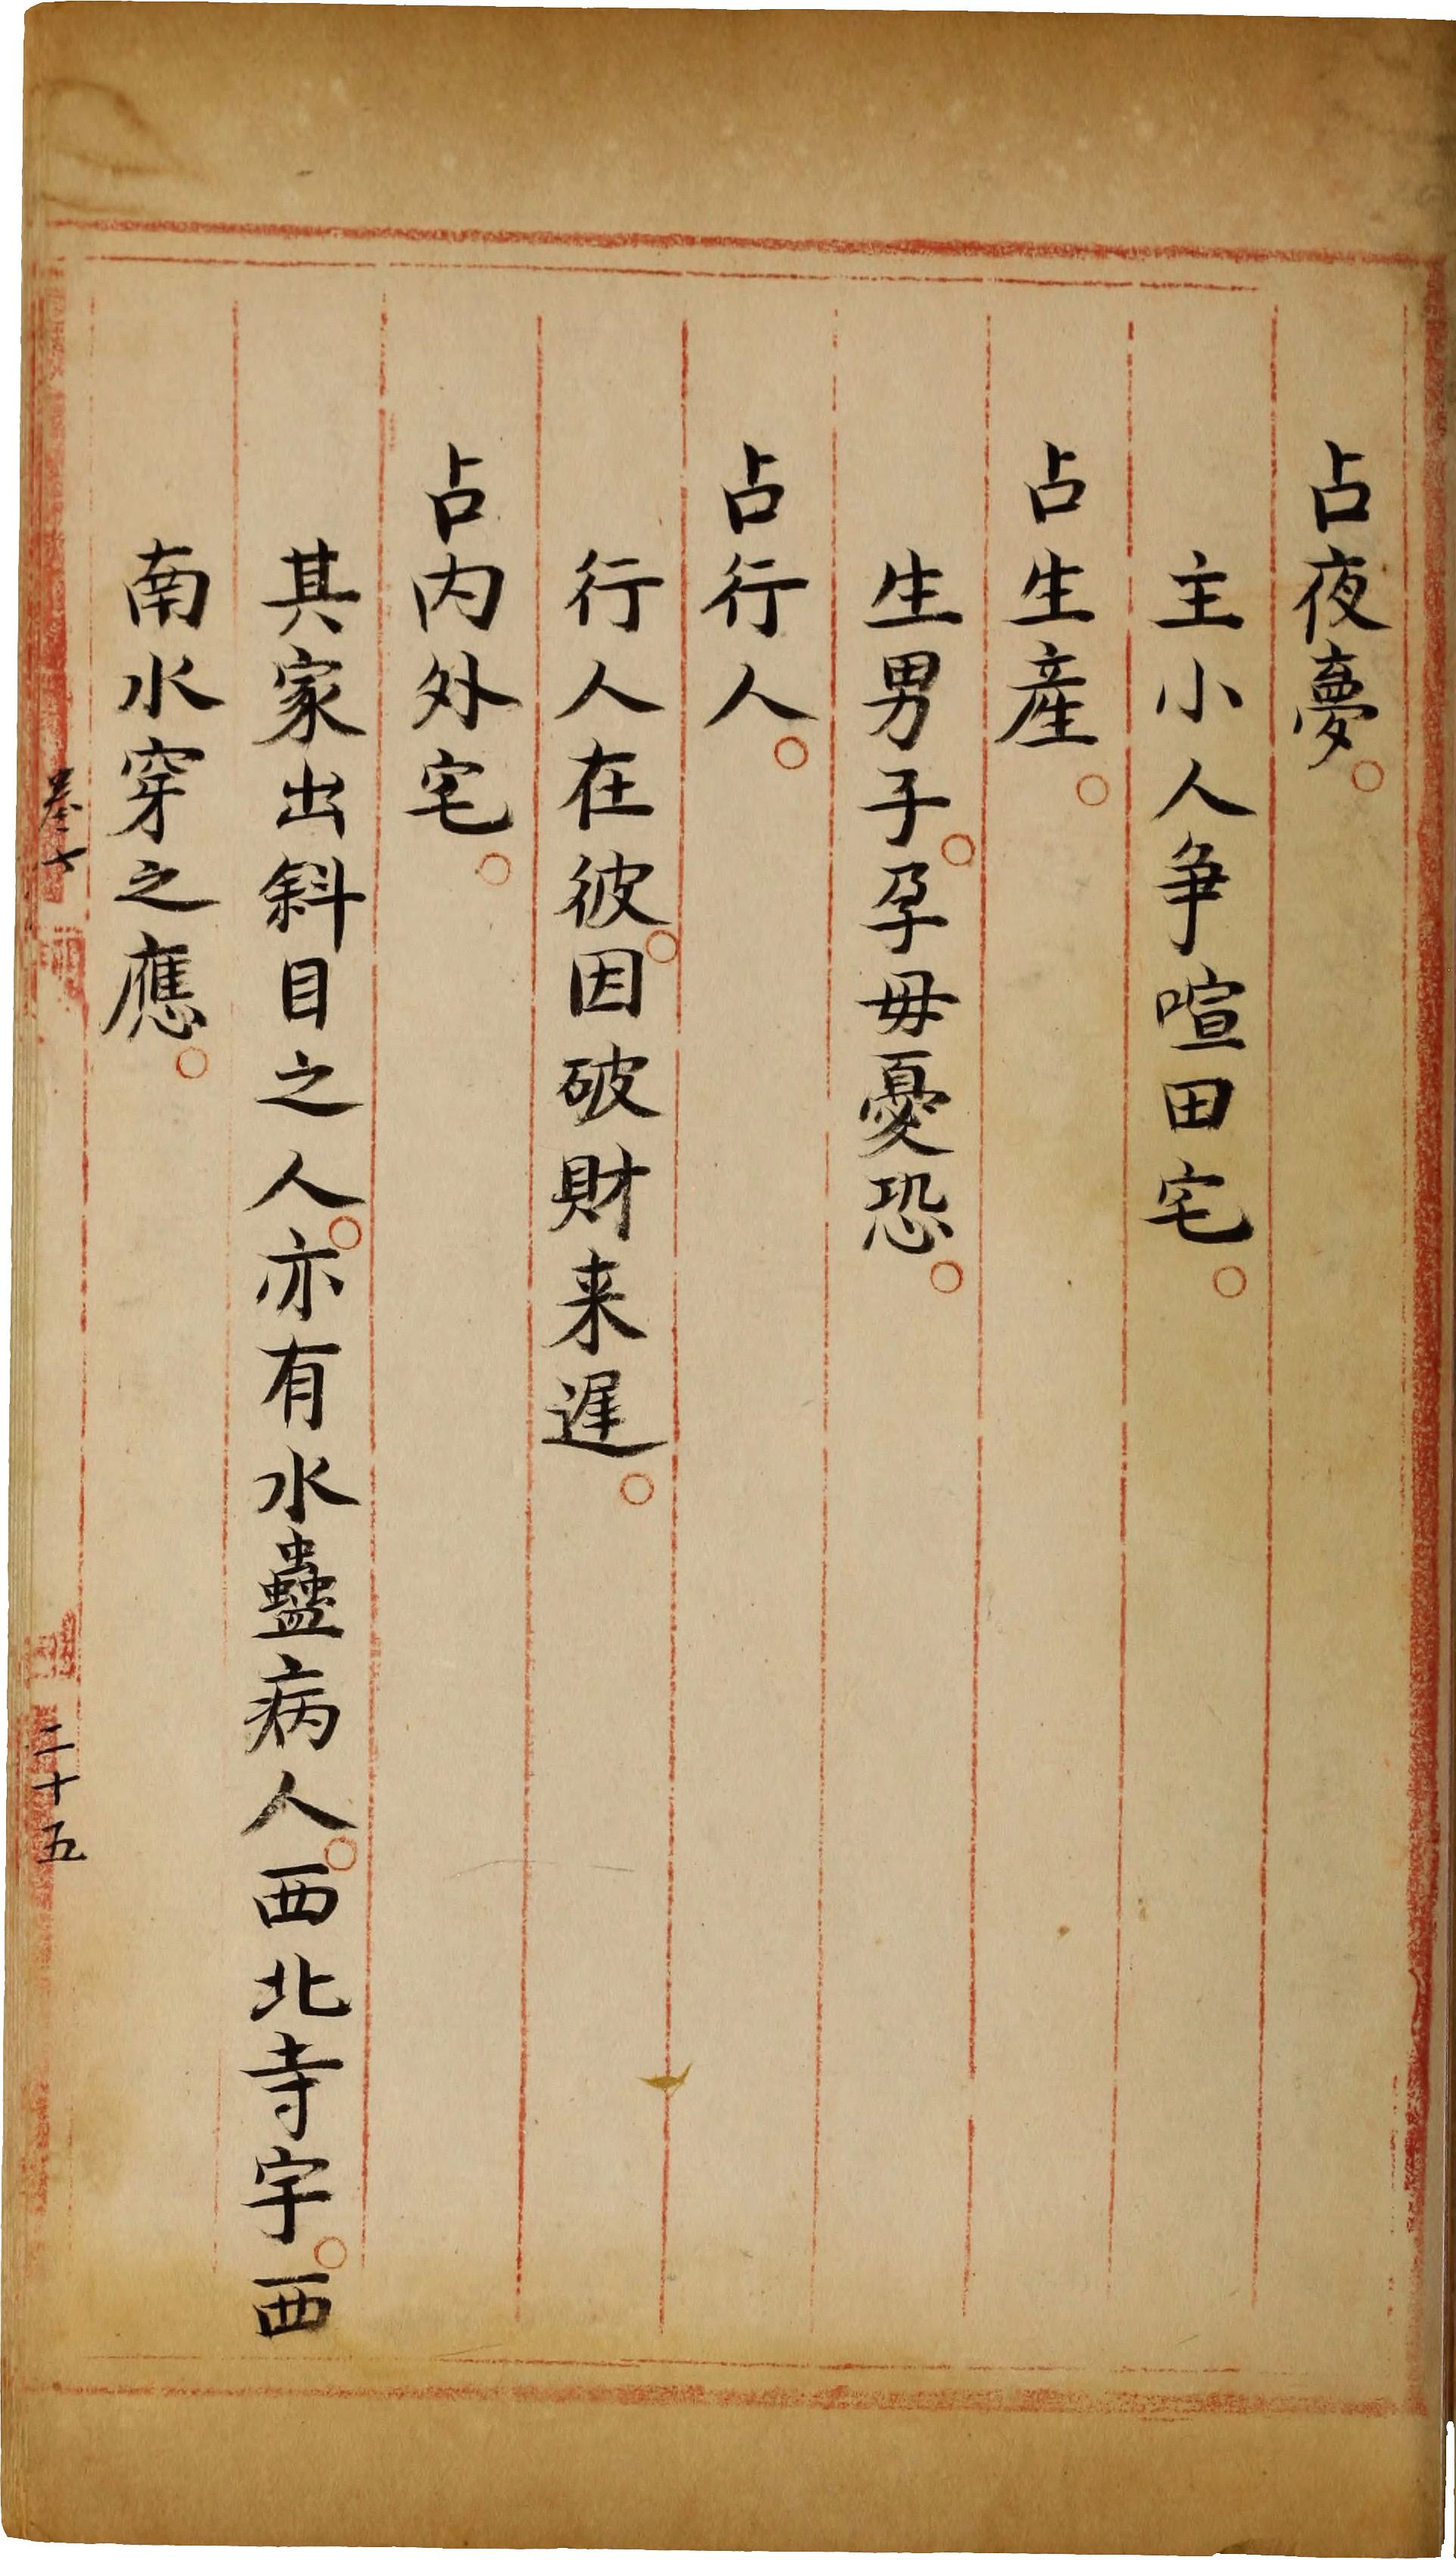 占夜夢。
主小人争喧田宅。
占生産。
生男子。孕毋憂恐。
占行人。
行人在彼。因破財来遅。
占内外宅。
其家出斜目之人。亦有水蠱病人。西北寺宇。西
南水穿之應。
卷七
二十五